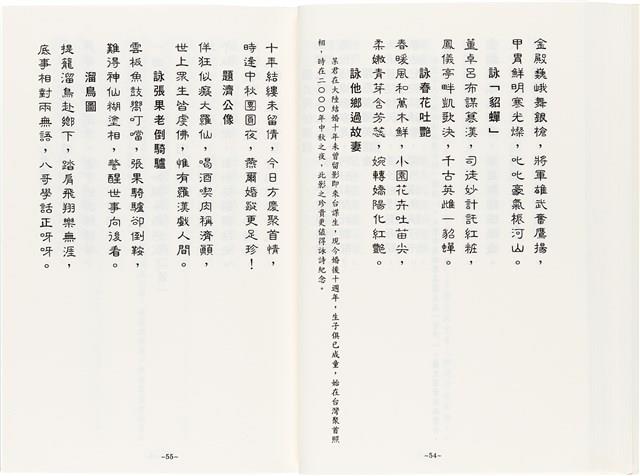 金殿巍峨舞銀槍，將軍雄武奮鷹揚，
甲冑鮮明寒光燦，叱叱豪氣振河山。
詠「貂蟬」
董卓呂布謀篡漢，司徒妙計託紅粧，
鳳儀亭畔凱歌決，千古英雌一貂蟬。
詠春花吐艷
春暖風和萬木鮮，小園花卉吐苗尖，
柔嫩青芽含芳蕊，婉轉嬌陽化紅艷。
詠他鄉過故妻
某君在大陸結婚十年未曾留影即來台謀生，現今婚後十週年，生子俱已成童，始在台灣聚首照
相，時在二○○○年中秋之夜，此影之珍貴更值得詠詩紀念。
~54~
十年結縷未留倩，今日方慶聚首情，
時逢中秋團圓夜，燕爾婚誼更足珍！
題濟公像
佯狂似癡大羅仙，喝酒喫肉稱濟顛，
世上眾生皆虔佛，惟有羅漢戲人間。
詠張果老倒騎驢
雲板魚鼓嚮叮噹，張果騎驢卻倒鞍，
難得神仙糊塗相，警醒世事向後看。
溜鳥圖
提籠溜鳥赴鄉下，踏肩飛翔樂無涯，
底事相對兩無語，八哥學話正呀呀。
~55~